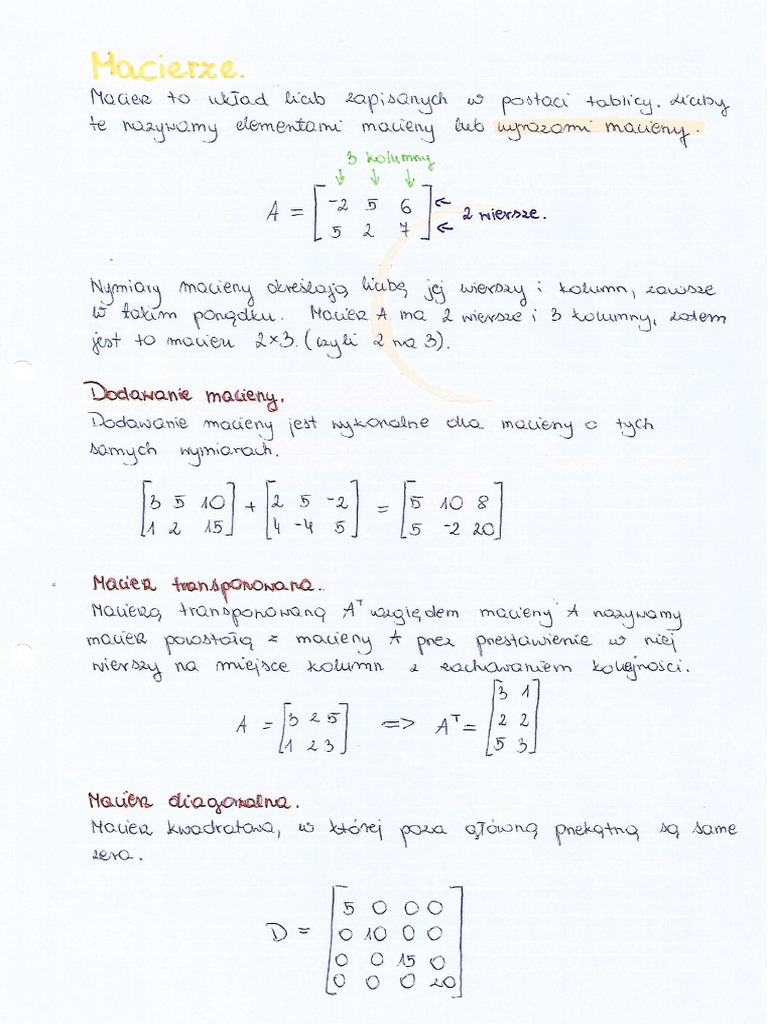 Macierze.
Macierz to układ liczb zapisanych w postaci tablicy. Liczby
te nazywamy elementami macierzy lub wyrazami macierzy.
3 kolumny
↓ ↓ ↓
A = [-2 5 6] ←
[5 2 7] ← 2 wiersze.
Wymiary macierzy określają liczbę jej wierszy i kolumn, zawsze
w takim porządku. Macierz A ma 2 wiersze i 3 kolumny, zatem
jest to macierz 2×3. (czyli 2 na 3).
Dodawanie macierzy.
Dodawanie macierzy jest wykonalne dla macierzy o tych
samych wymiarach.
[3 5 10] + [2 5 -2] = [5 10 8]
[1 2 15] [4 -4 5] [5 -2 20]
Macierz transponowana.
Macierzą transponowaną Aᵀ względem macierzy A nazywamy
macierz powstałą z macierzy A przez przestawienie w niej
wierszy na miejsce kolumn z zachowaniem kolejności.
A = [3 2 5] => Aᵀ = [3 1]
[1 2 3] [2 2]
[5 3]
Macierz diagonalna.
Macierz kwadratowa, w której poza główną przekątną są same
zera.
D = [5 0 0 0]
[0 10 0 0]
[0 0 15 0]
[0 0 0 20]